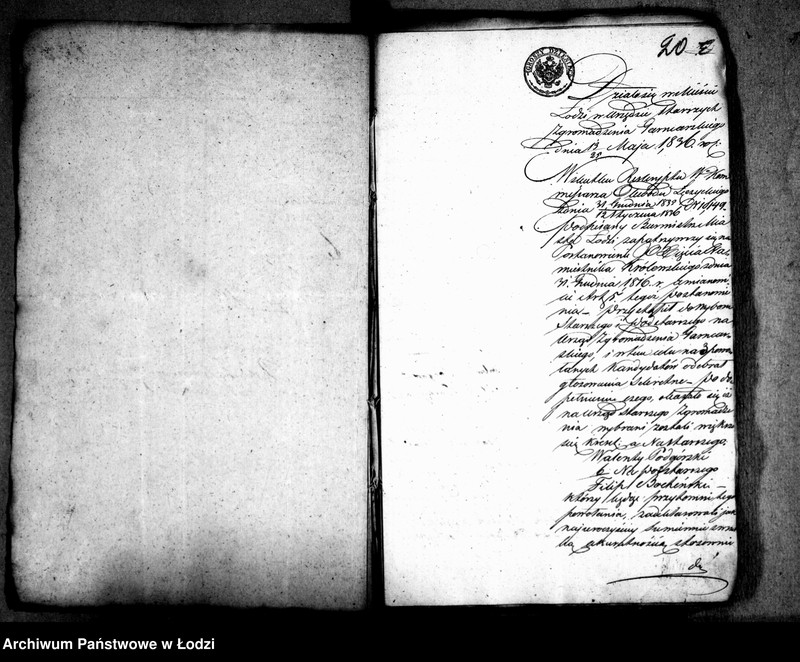 20
GROSZY DZIESIĘĆ
Działo się w Mieście
Łodzi w Urzędzie Starszych
Zgromadzenia Garncarskiego
dnia 13/25 Maja 1836 r.
W skutku Reskryptu W. Kom
missarza Obwodu Łęczyckiego
z dnia 31 Grudnia 1835 / 12 Stycznia 1836
podpisany Burmistrz Mia
sta Łodzi zapatrzywszy się na
Postanowienie Xięcia Na
miestnika Królewskiego z dnia
31 Grudnia 1816 r. a mianowi
cie Art. 5 tegoż postanowie
nia przystąpił do wyboru
Starszego i Podstarszego na
Urząd Zgromadzenia Garncar
skiego, i w tym celu na 3 poda
tanych Kandydatów odebrał
głosowania sekretne po do
pełnieniu czego, okazało się iż
na Urząd Starszego Zgromadze
nia wybrani zostali większo
ścią kresek a Na starszego,
Walenty Podgórski
b Na podstarszego
Filip Bocheński
którzy będąc przytomni tego
powołania, zadeklarowali jak
najuroczyściej sumiennie i
akuratnością stosownie
do
Archiwum Państwowe w Łodzi